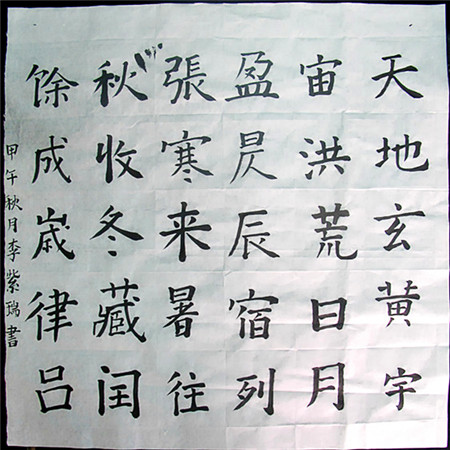 天地玄黄宇
宙洪荒日月
盈昃辰宿列
張寒来暑往
秋收冬藏闰
餘成歲律吕
甲午秋月李紫瑞書